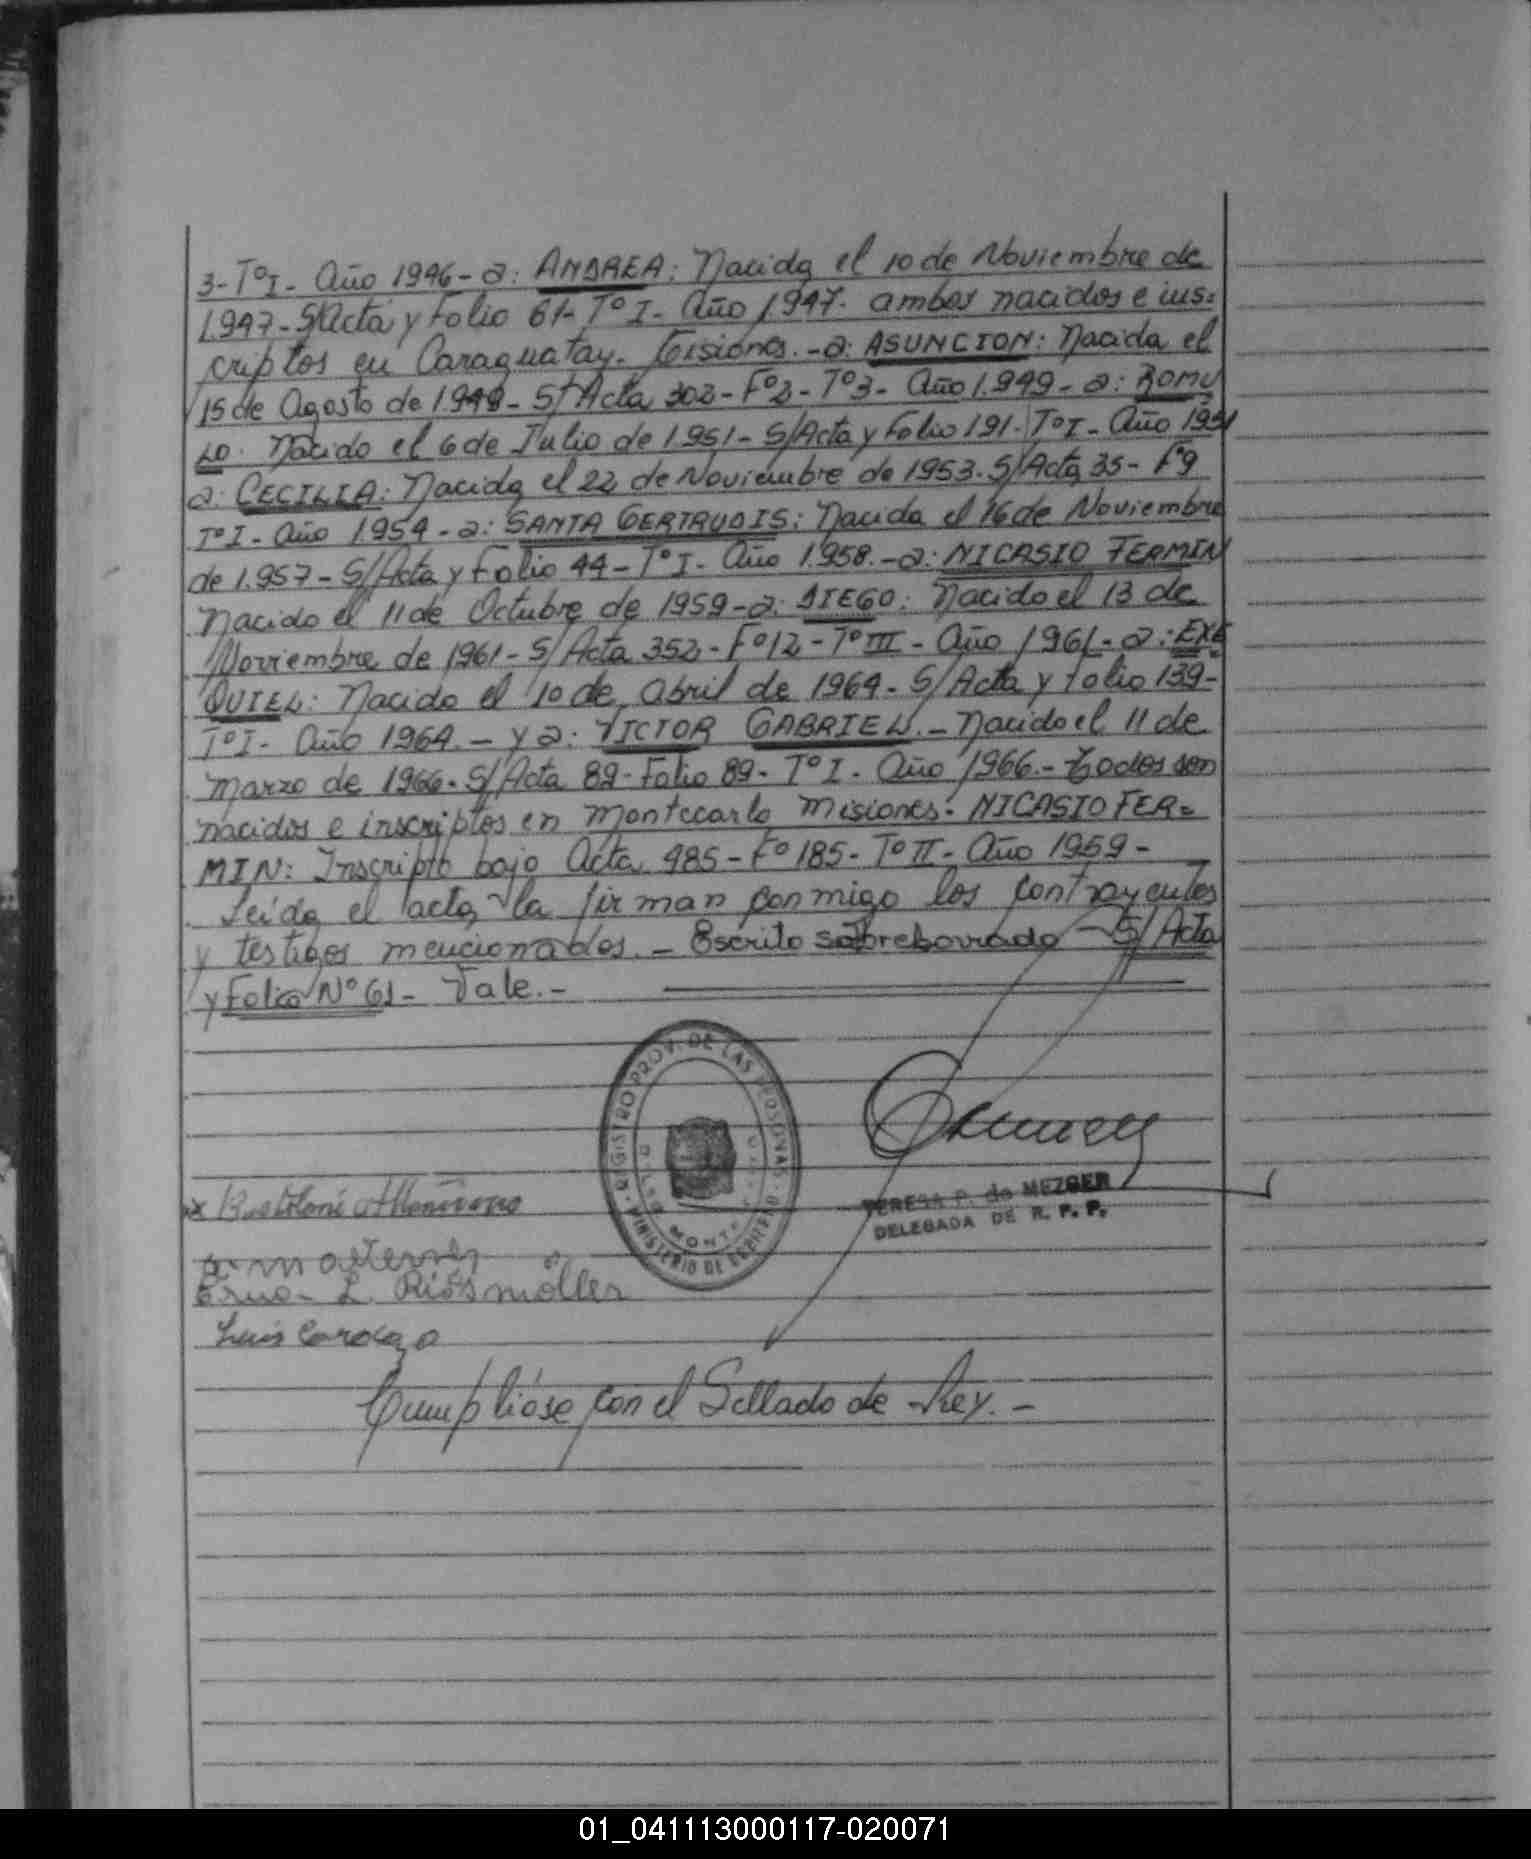 3-TºI- Año 1946- a: ANDREA: Nacida el 10 de Noviembre de
1.947- S/Acta y Folio 61- Tº I- Año 1.947. ambos nacidos e ins=
criptos en Caraguatay. Misiones.-a: ASUNCION: Nacida el
15 de Agosto de 1.949- S/ Acta 302- Fº2- Tº3- Año 1.949- a: ROMU
LO. Nacido el 6 de Julio de 1.951- S/Acta y Folio 191- TºI- Año 1951
a: CECILIA: Nacida el 22 de Noviembre de 1953. S/Acta 35- Fº9
TºI- Año 1954- a: SANTA GERTRUDIS: Nacida el 16 de Noviembre
de 1.957- S/Acta y Folio 44- Tº I- Año 1.958.-a: NICASIO FERMIN
Nacido el 11 de Octubre de 1959-a: DIEGO: Nacido el 13 de
Noviembre de 1961- S/ Acta 352- Fº12- Tº III- Año 1961- a: EXE
QUIEL: Nacido el 10 de abril de 1964- S/ Acta y folio 139-
TºI- Año 1964.- y a: VICTOR GABRIEL.- Nacido el 11 de
Marzo de 1966- S/Acta 89- Folio 89- Tº I. Año 1966.- Todos son
nacidos e inscriptos en Montecarlo Misiones- NICASIO FER=
MIN: Inscripto bajo Acta 485- Fº 185- Tº II- Año 1959-
Leida el acta, la firman conmigo los contrayentes
y testigos mencionados.- Escrito sobreborrado- S/Acta
y Folio Nº 61- Vale.-
REGISTRO PROV. DE LAS PERSONAS
MINISTERIO DE GOBIERNO
TERESA P. de MEZGER
DELEGADA DE R. P. P.
x
Erno- L. Riosmöller
Luis Cardozo
Cumplióse con el Sellado de Ley.-
01_041113000117-020071